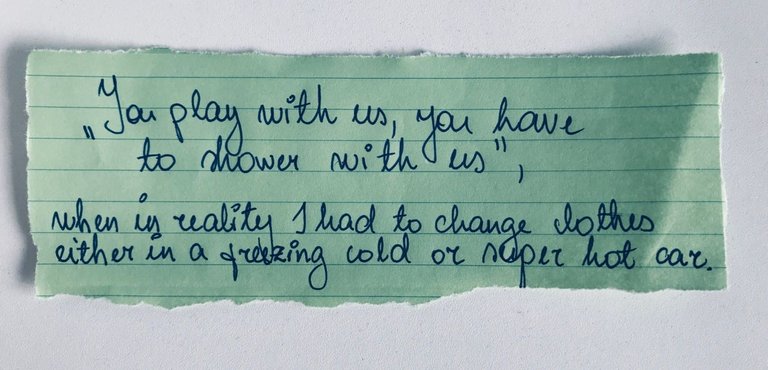 „You play with us, you have
to shower with us",
when in reality I had to change clothes
either in a freezing cold or super hot car.